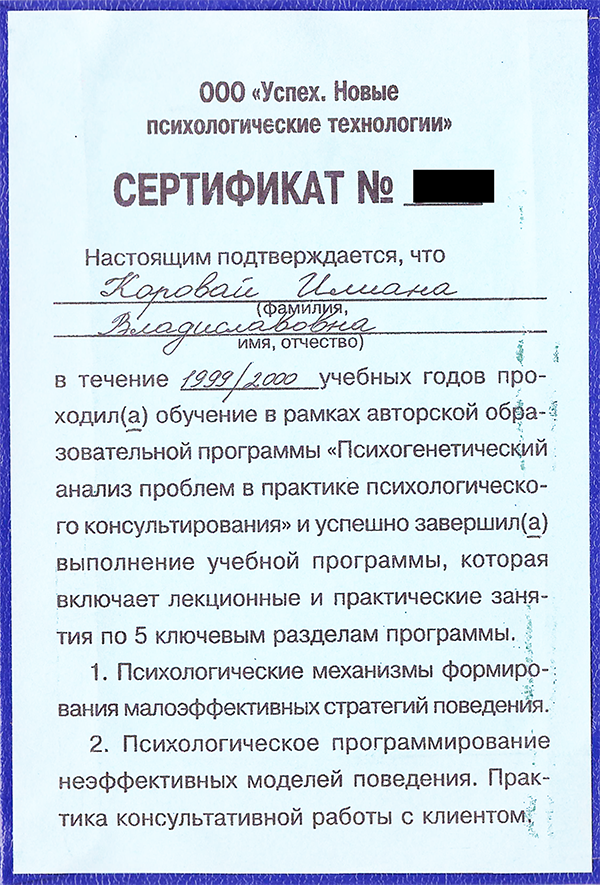 ООО «Успех. Новые
психологические технологии»
СЕРТИФИКАТ №
Настоящим подтверждается, что
Коровай Илиана
(фамилия,
Владиславовна
имя, отчество)
в течение 1999/2000 учебных годов про-
ходил(а) обучение в рамках авторской обра-
зовательной программы «Психогенетический
анализ проблем в практике психологическо-
го консультирования» и успешно завершил(а)
выполнение учебной программы, которая
включает лекционные и практические заня-
тия по 5 ключевым разделам программы.
1. Психологические механизмы формиро-
вания малоэффективных стратегий поведения.
2. Психологическое программирование
неэффективных моделей поведения. Прак-
тика консультативной работы с клиентом.